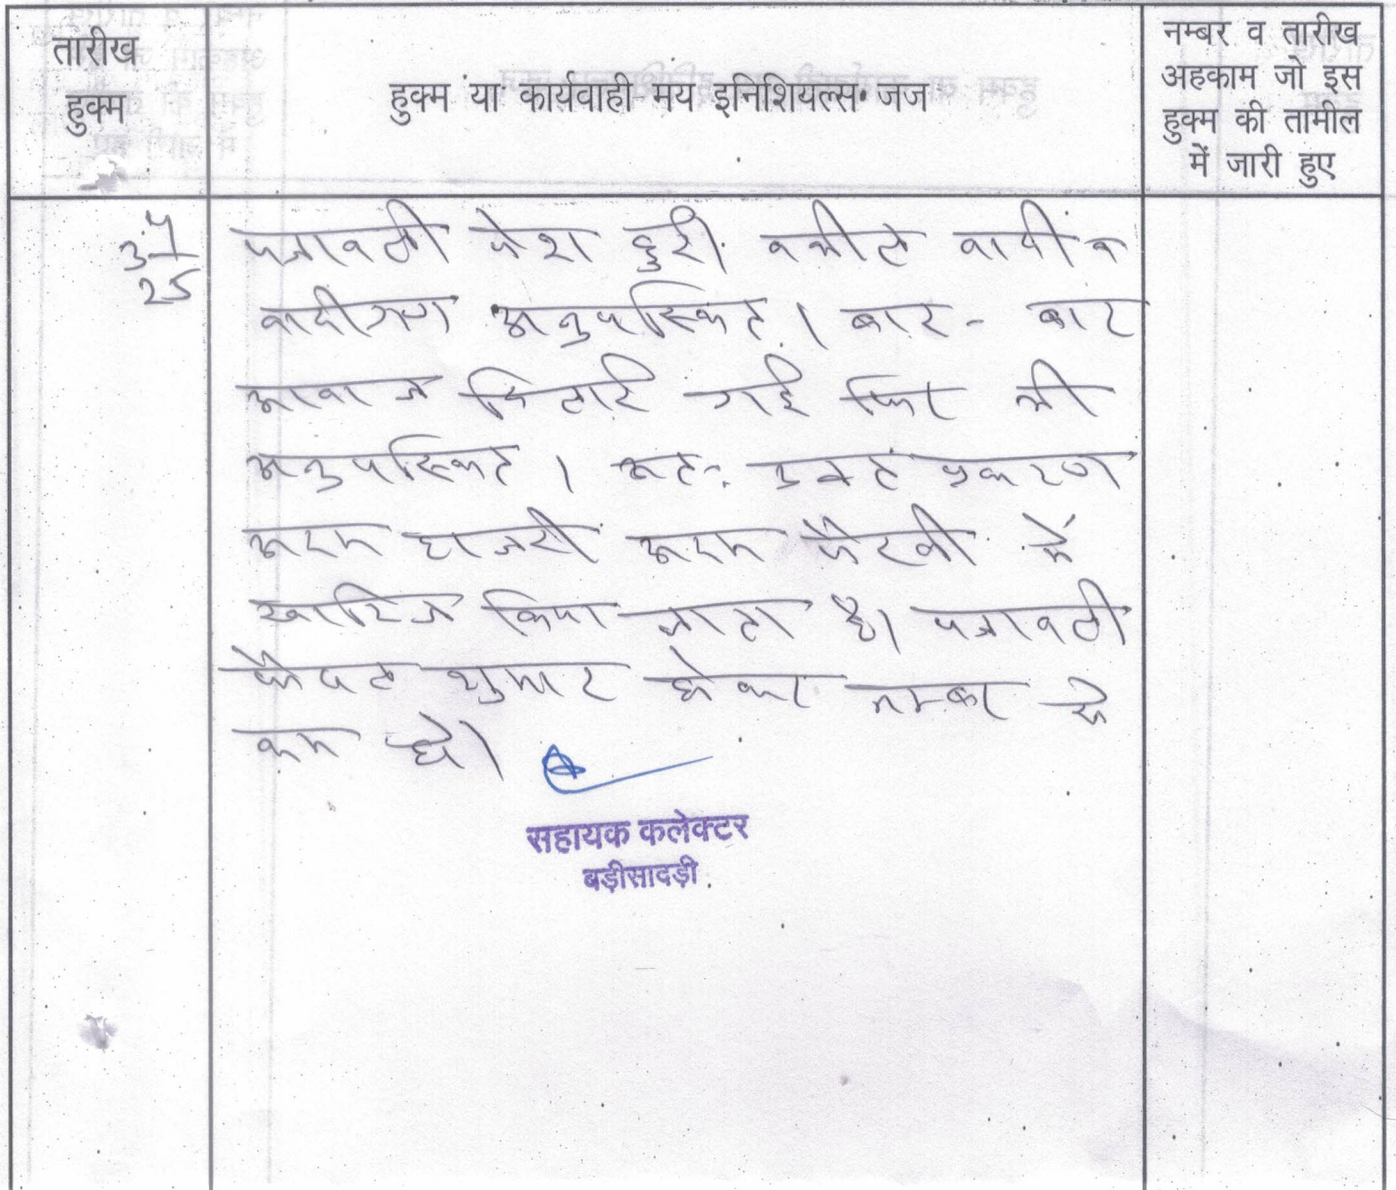 तारीख
हुक्म
हुक्म या कार्यवाही मय इनिशियल्स जज
नम्बर व तारीख
अहकाम जो इस
हुक्म की तामील
में जारी हुए
पत्रावली पेश हुई। वकील वादी व
वादीगण अनुपस्थित। बार - बार
आवाज दिलाई गई फिर भी
अनुपस्थित। अतः उक्त प्रकरण
अदम हाजरी अदम पैरवी में
खारिज किया जाता है। पत्रावली
फैसल शुमार होकर नम्बर से
कम हो।
सहायक कलेक्टर
बड़ीसादड़ी